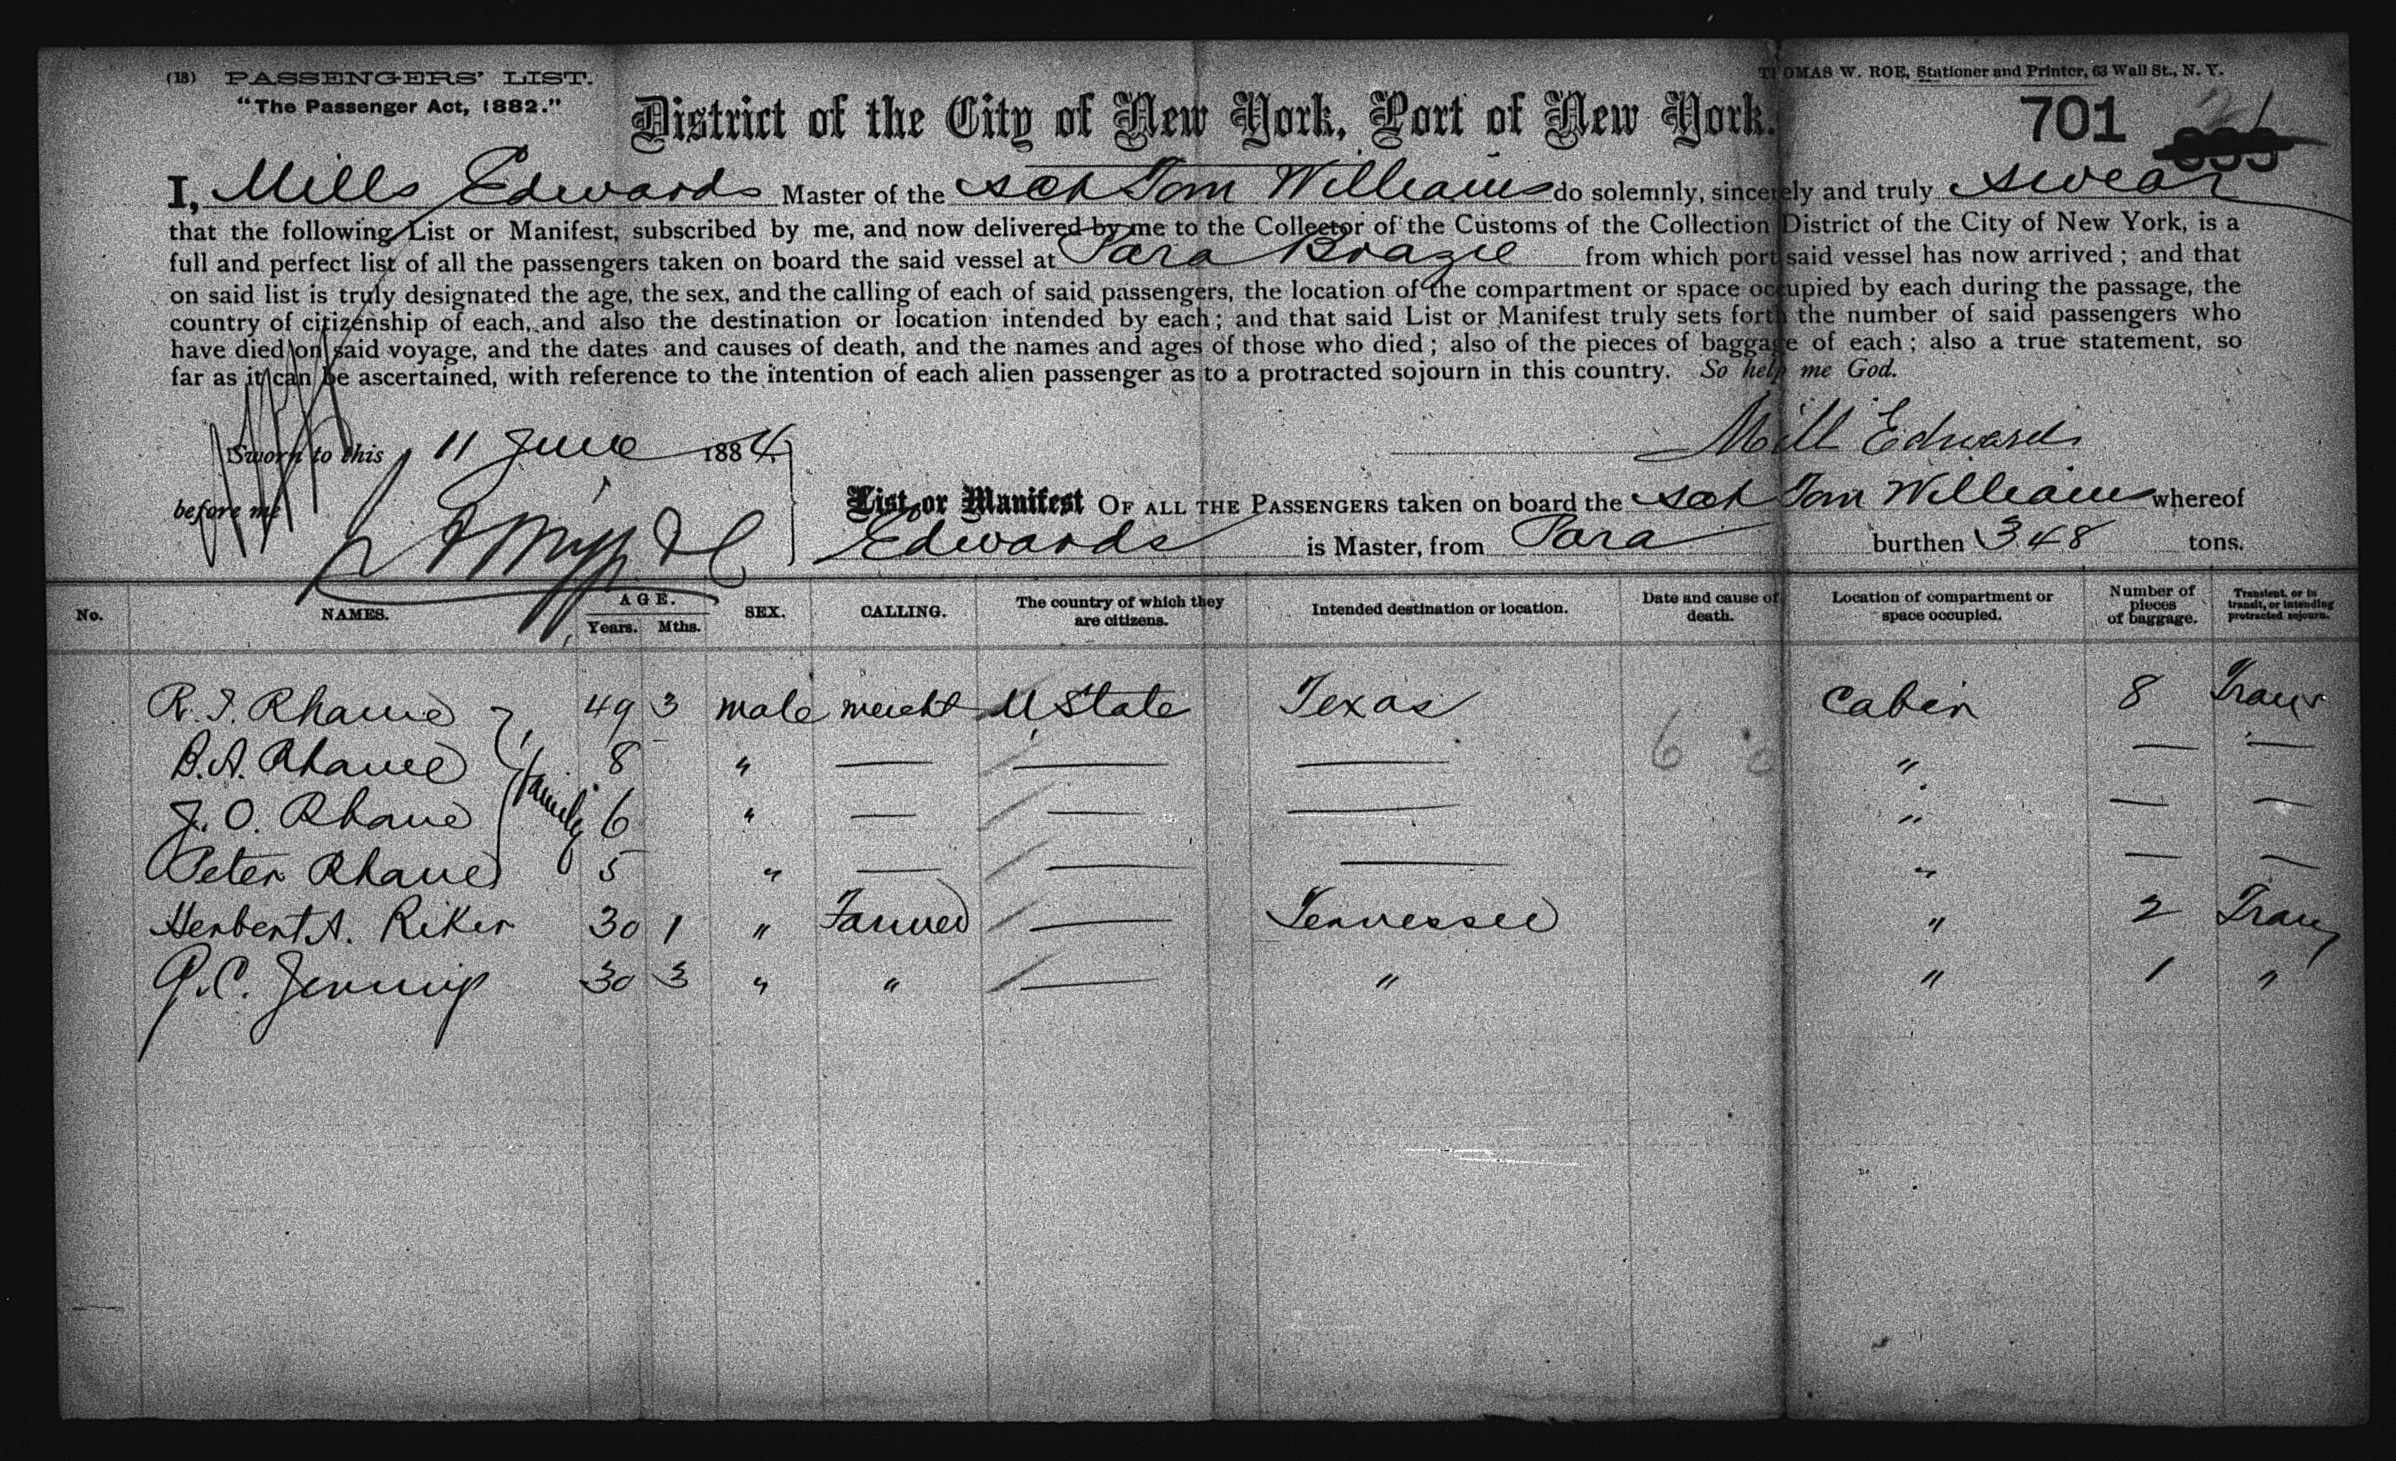 (18) PASSENGERS' LIST.
THOMAS W. ROE, Stationer and Printer, 63 Wall St., N. Y.
"The Passenger Act, 1882."
District of the City of New York, Port of New York.
701
I, Mills Edwards Master of the Sch Tom Williams do solemnly, sincerely and truly swear
that the following List or Manifest, subscribed by me, and now delivered by me to the Collector of the Customs of the Collection District of the City of New York, is a
full and perfect list of all the passengers taken on board the said vessel at Para Brazil from which port said vessel has now arrived; and that
on said list is truly designated the age, the sex, and the calling of each of said passengers, the location of the compartment or space occupied by each during the passage, the
country of citizenship of each, and also the destination or location intended by each; and that said List or Manifest truly sets forth the number of said passengers who
have died on said voyage, and the dates and causes of death, and the names and ages of those who died; also of the pieces of baggage of each; also a true statement, so
far as it can be ascertained, with reference to the intention of each alien passenger as to a protracted sojourn in this country. So help me God.
Sworn to this 11 June 1884
Mill Edwards
before me
List or Manifest OF ALL THE PASSENGERS taken on board the Sch Tom Williams whereof
Edwards is Master, from Para burthen 348 tons.
No. NAMES. AGE. Years. Mths. SEX. CALLING. The country of which they are citizens. Intended destination or location. Date and cause of death. Location of compartment or space occupied. Number of pieces of baggage. Transient, or in transit, or intending protracted sojourn.
R. I. Rhame 49 3 male mercht U State Texas Cabin 8 Trans
B. A. Rhame 8 " — — — " — —
J. O. Rhame family 6 " — — — " — —
Peter Rhame 5 " — — — " — —
Herbert A. Riker 30 1 " Farmer — Tennessee " 2 Trans
G. C. Jennings 30 3 " " — " " 1 "